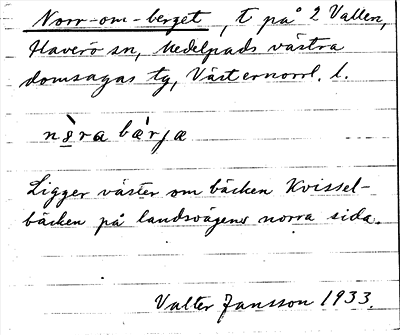 Norr-om-berget, t på 2 Vallen,
Haverö sn, Medelpads västra
domsagas tg, Västernorrl. l.
nòra bárjæ
Ligger väster om bäcken Kvissel-
bäcken på landsvägens norra sida.
Valter Jansson 1933.